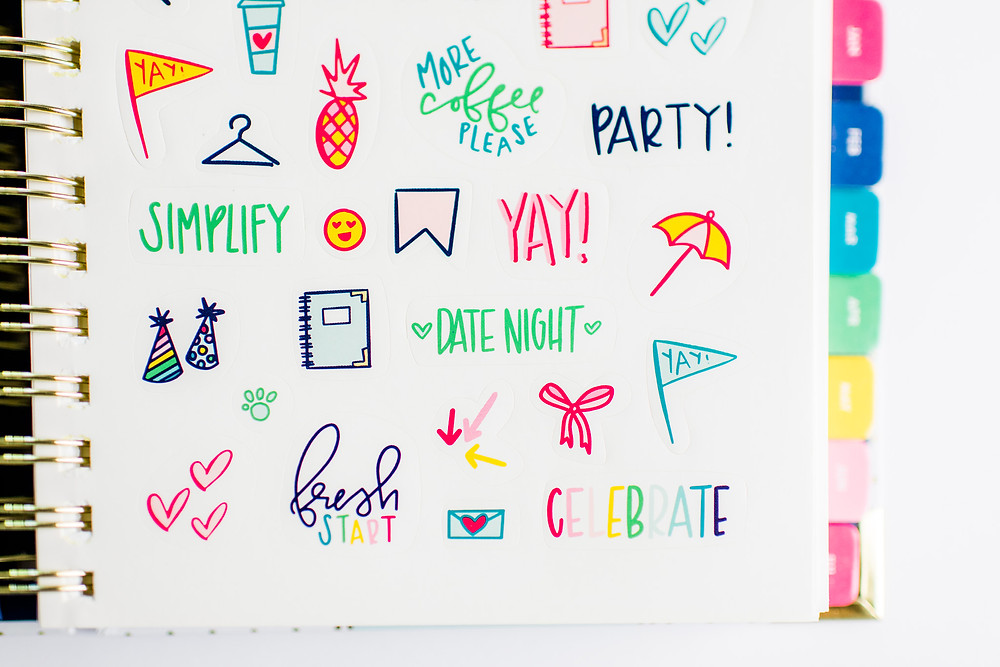 YAY!
MORE
coffee
PLEASE
PARTY!
SIMPLIFY
YAY!
DATE NIGHT
YAY!
fresh
START
CELEBRATE